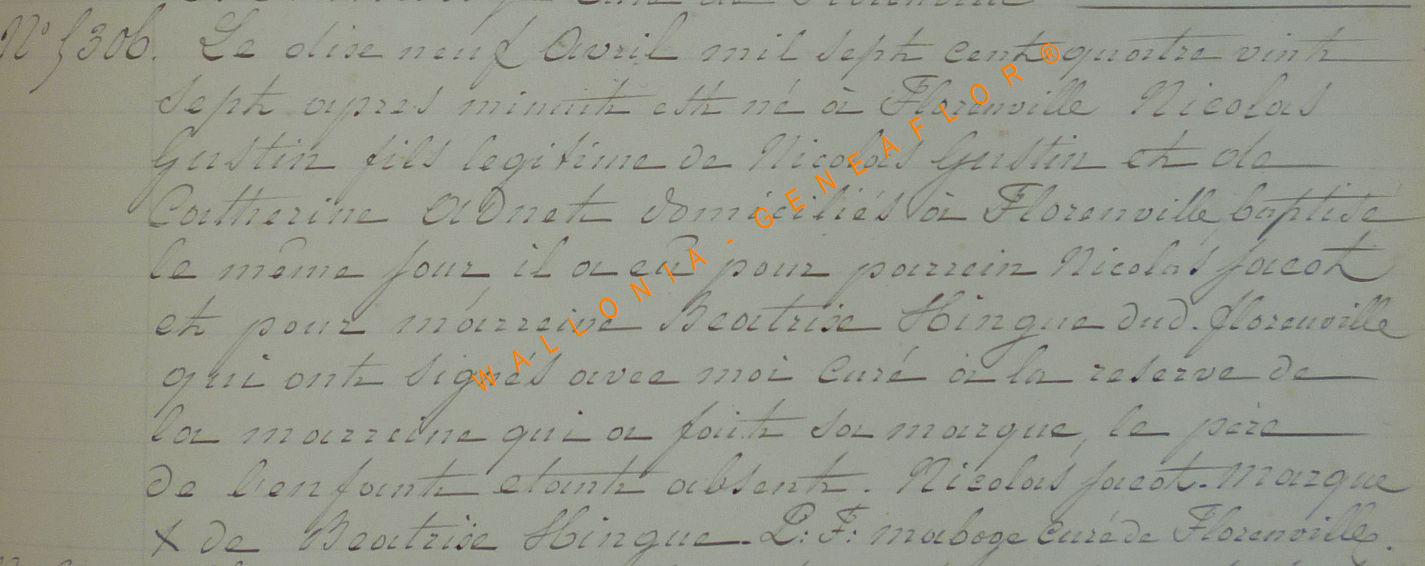 curé de Florenville
N° 5306. Le dixe neuf Avril mil sept cent quatre vint
sept apres minuit est né à Florenville Nicolas
Gustin fils legitime de Nicolas Gustin et de
Catherine Adnet domiciliés à Florenville, baptisé
le même jour il a eû pour parrein Nicolas Jacot
et pour marreine Beatrixe Hingue dud. florenville
qui ont signés avec moi curé à la reserve de
la marreine qui a fait sa marque, le père
de l'enfant etant absent. Nicolas Jacot. Marque
X de Beatrixe Hingue. P: F: maboge curé de Florenville.
WALLONIA - GENEAFLOR ®